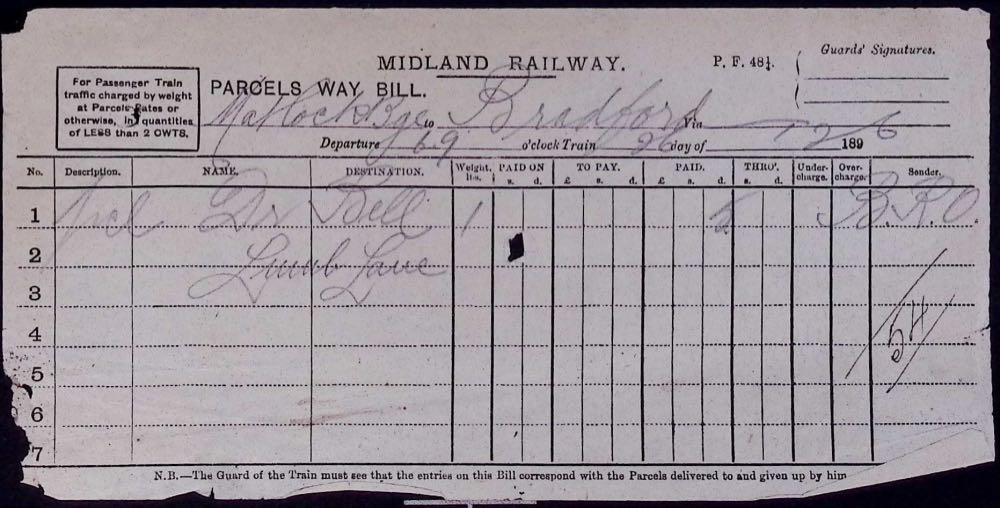 Guards' Signatures.
MIDLAND RAILWAY. P. F. 48¼.
For Passenger Train
traffic charged by weight
at Parcels Rates or
otherwise, in quantities
of LESS than 2 CWTS.
PARCELS WAY BILL.
Matlock Bge to Bradford Via
Departure 6-9 o'clock Train 26 day of 12 1896
No. Description. NAME. DESTINATION. Weight. lbs. PAID ON s. d. TO PAY. £ s. d. PAID. £ s. d. THRO'. s. d. Under-charge. Over-charge. Sender.
1 pcl Dr Bell 1 B.R.O.
2 Lumb Lane
3
4 54
5
6
7
N.B.—The Guard of the Train must see that the entries on this Bill correspond with the Parcels delivered to and given up by him